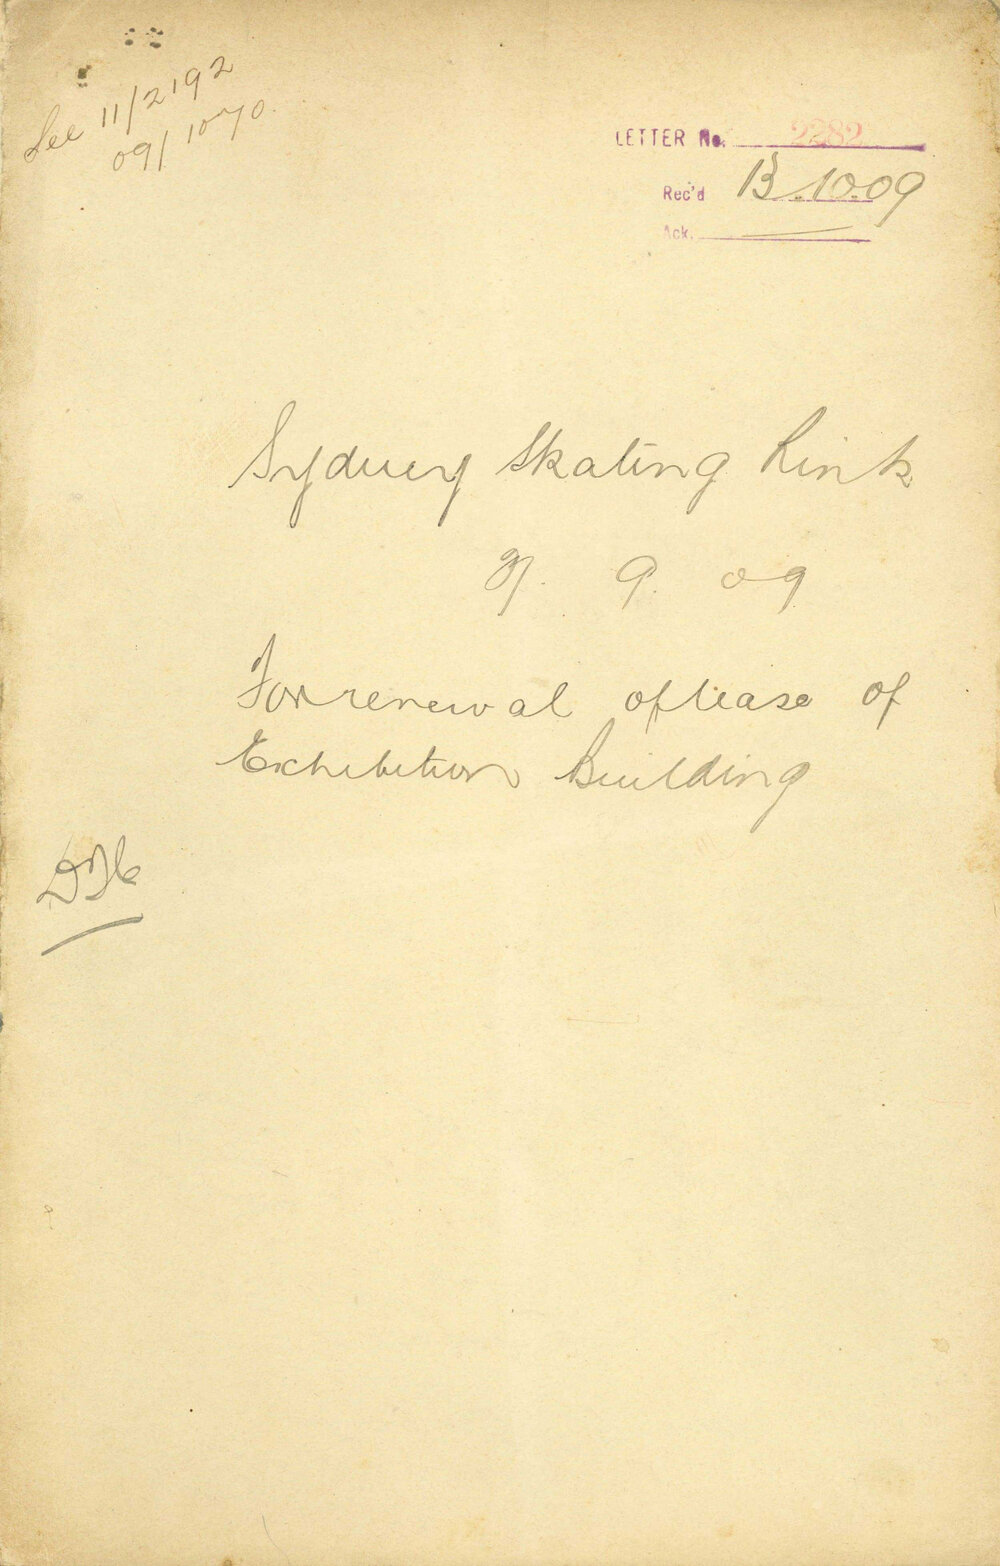 See 11/2192
09/1070
LETTER No. 2282
Rec'd 13.10.09
Ack.
Sydney Skating Rink
9. 09
For renewal of lease of
Exhibition Building